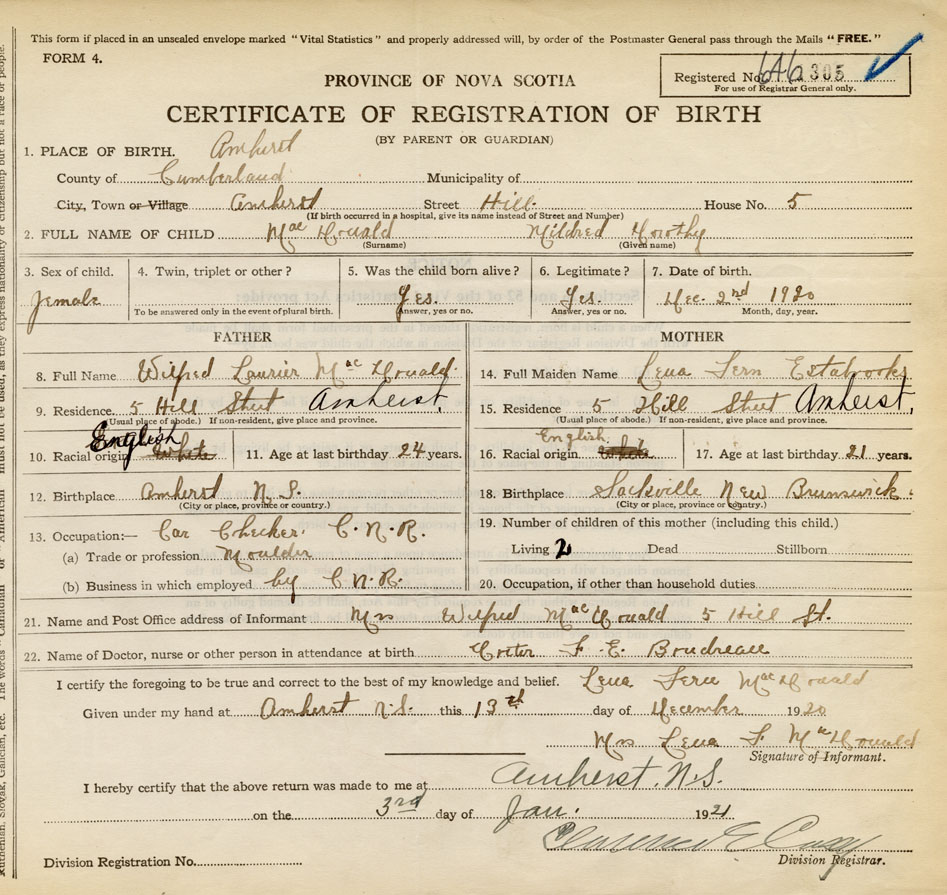 This form if placed in an unsealed envelope marked "Vital Statistics" and properly addressed will, by order of the Postmaster General pass through the Mails "FREE."
FORM 4.
Registered No. 646305
For use of Registrar General only.
PROVINCE OF NOVA SCOTIA
CERTIFICATE OF REGISTRATION OF BIRTH
(BY PARENT OR GUARDIAN)
1. PLACE OF BIRTH. Amherst
County of Cumberland Municipality of
City, Town or Village Amherst Street Hill. House No. 5
(If birth occurred in a hospital, give its name instead of Street and Number)
2. FULL NAME OF CHILD MacDonald Mildred Dorothy
(Surname) (Given name)
3. Sex of child. 4. Twin, triplet or other? 5. Was the child born alive? 6. Legitimate? 7. Date of birth.
Female Yes. Yes. Dec. 2nd 1920
To be answered only in the event of plural birth. Answer, yes or no. Answer, yes or no. Month, day, year.
FATHER
8. Full Name Wilfred Laurier MacDonald.
9. Residence. 5 Hill Street Amherst.
(Usual place of abode.) If non-resident, give place and province.
English
10. Racial origin White 11. Age at last birthday 24 years.
12. Birthplace Amherst N.S.
(City or place, province or country.)
13. Occupation:— Car Checker. C.N.R.
(a) Trade or profession Moulder
(b) Business in which employed by C.N.R.
MOTHER
14. Full Maiden Name Lena Fern Estabrooks
15. Residence. 5 Hill Street Amherst.
(Usual place of abode.) If non-resident, give place and province.
English
16. Racial origin White 17. Age at last birthday 21 years.
18. Birthplace Sackville New Brunswick.
(City or place, province or country.)
19. Number of children of this mother (including this child.)
Living 2 Dead Stillborn
20. Occupation, if other than household duties
21. Name and Post Office address of Informant Mrs Wilfred MacDonald 5 Hill St.
22. Name of Doctor, nurse or other person in attendance at birth F. E. Boudreau
I certify the foregoing to be true and correct to the best of my knowledge and belief. Lena Fern MacDonald
Given under my hand at Amherst N.S. this 13th day of December 1920
Mrs Lena F. MacDonald
Signature of Informant.
I hereby certify that the above return was made to me at Amherst. N.S.
on the 3rd day of Jan. 1921
Clarence E
Division Registration No. Division Registrar.